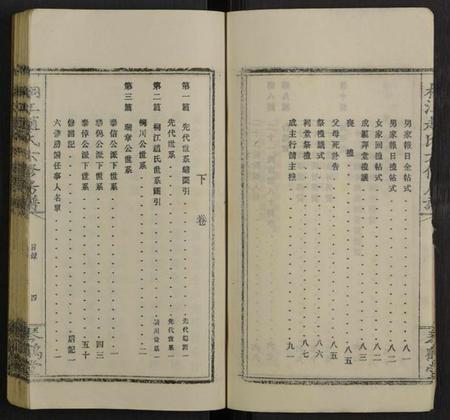 男家報日全帖式 八一
男家報日禮帖式 八二
女家回禮帖式 八二
成服拜堂禮議 八三
喪禮 八五
父母死訃告 八五
祭禮儀式 八六
祠堂祭禮 八七
成主行請主禮 九一
下卷
第一篇 先代世系總圖引 先代總圖一
先代世系 先代世系一
第二篇 桐江趙氏世系圖引
桐川公世系 桐川世系一
第三篇 瑞章公世系
泰信公派下世系 一
泰倘公派下世系 四三
泰倬公派下世系 五十
修譜記 后記一
六修房譜任事人名單
桐江趙氏六修房譜
目錄 四
琴鶴堂